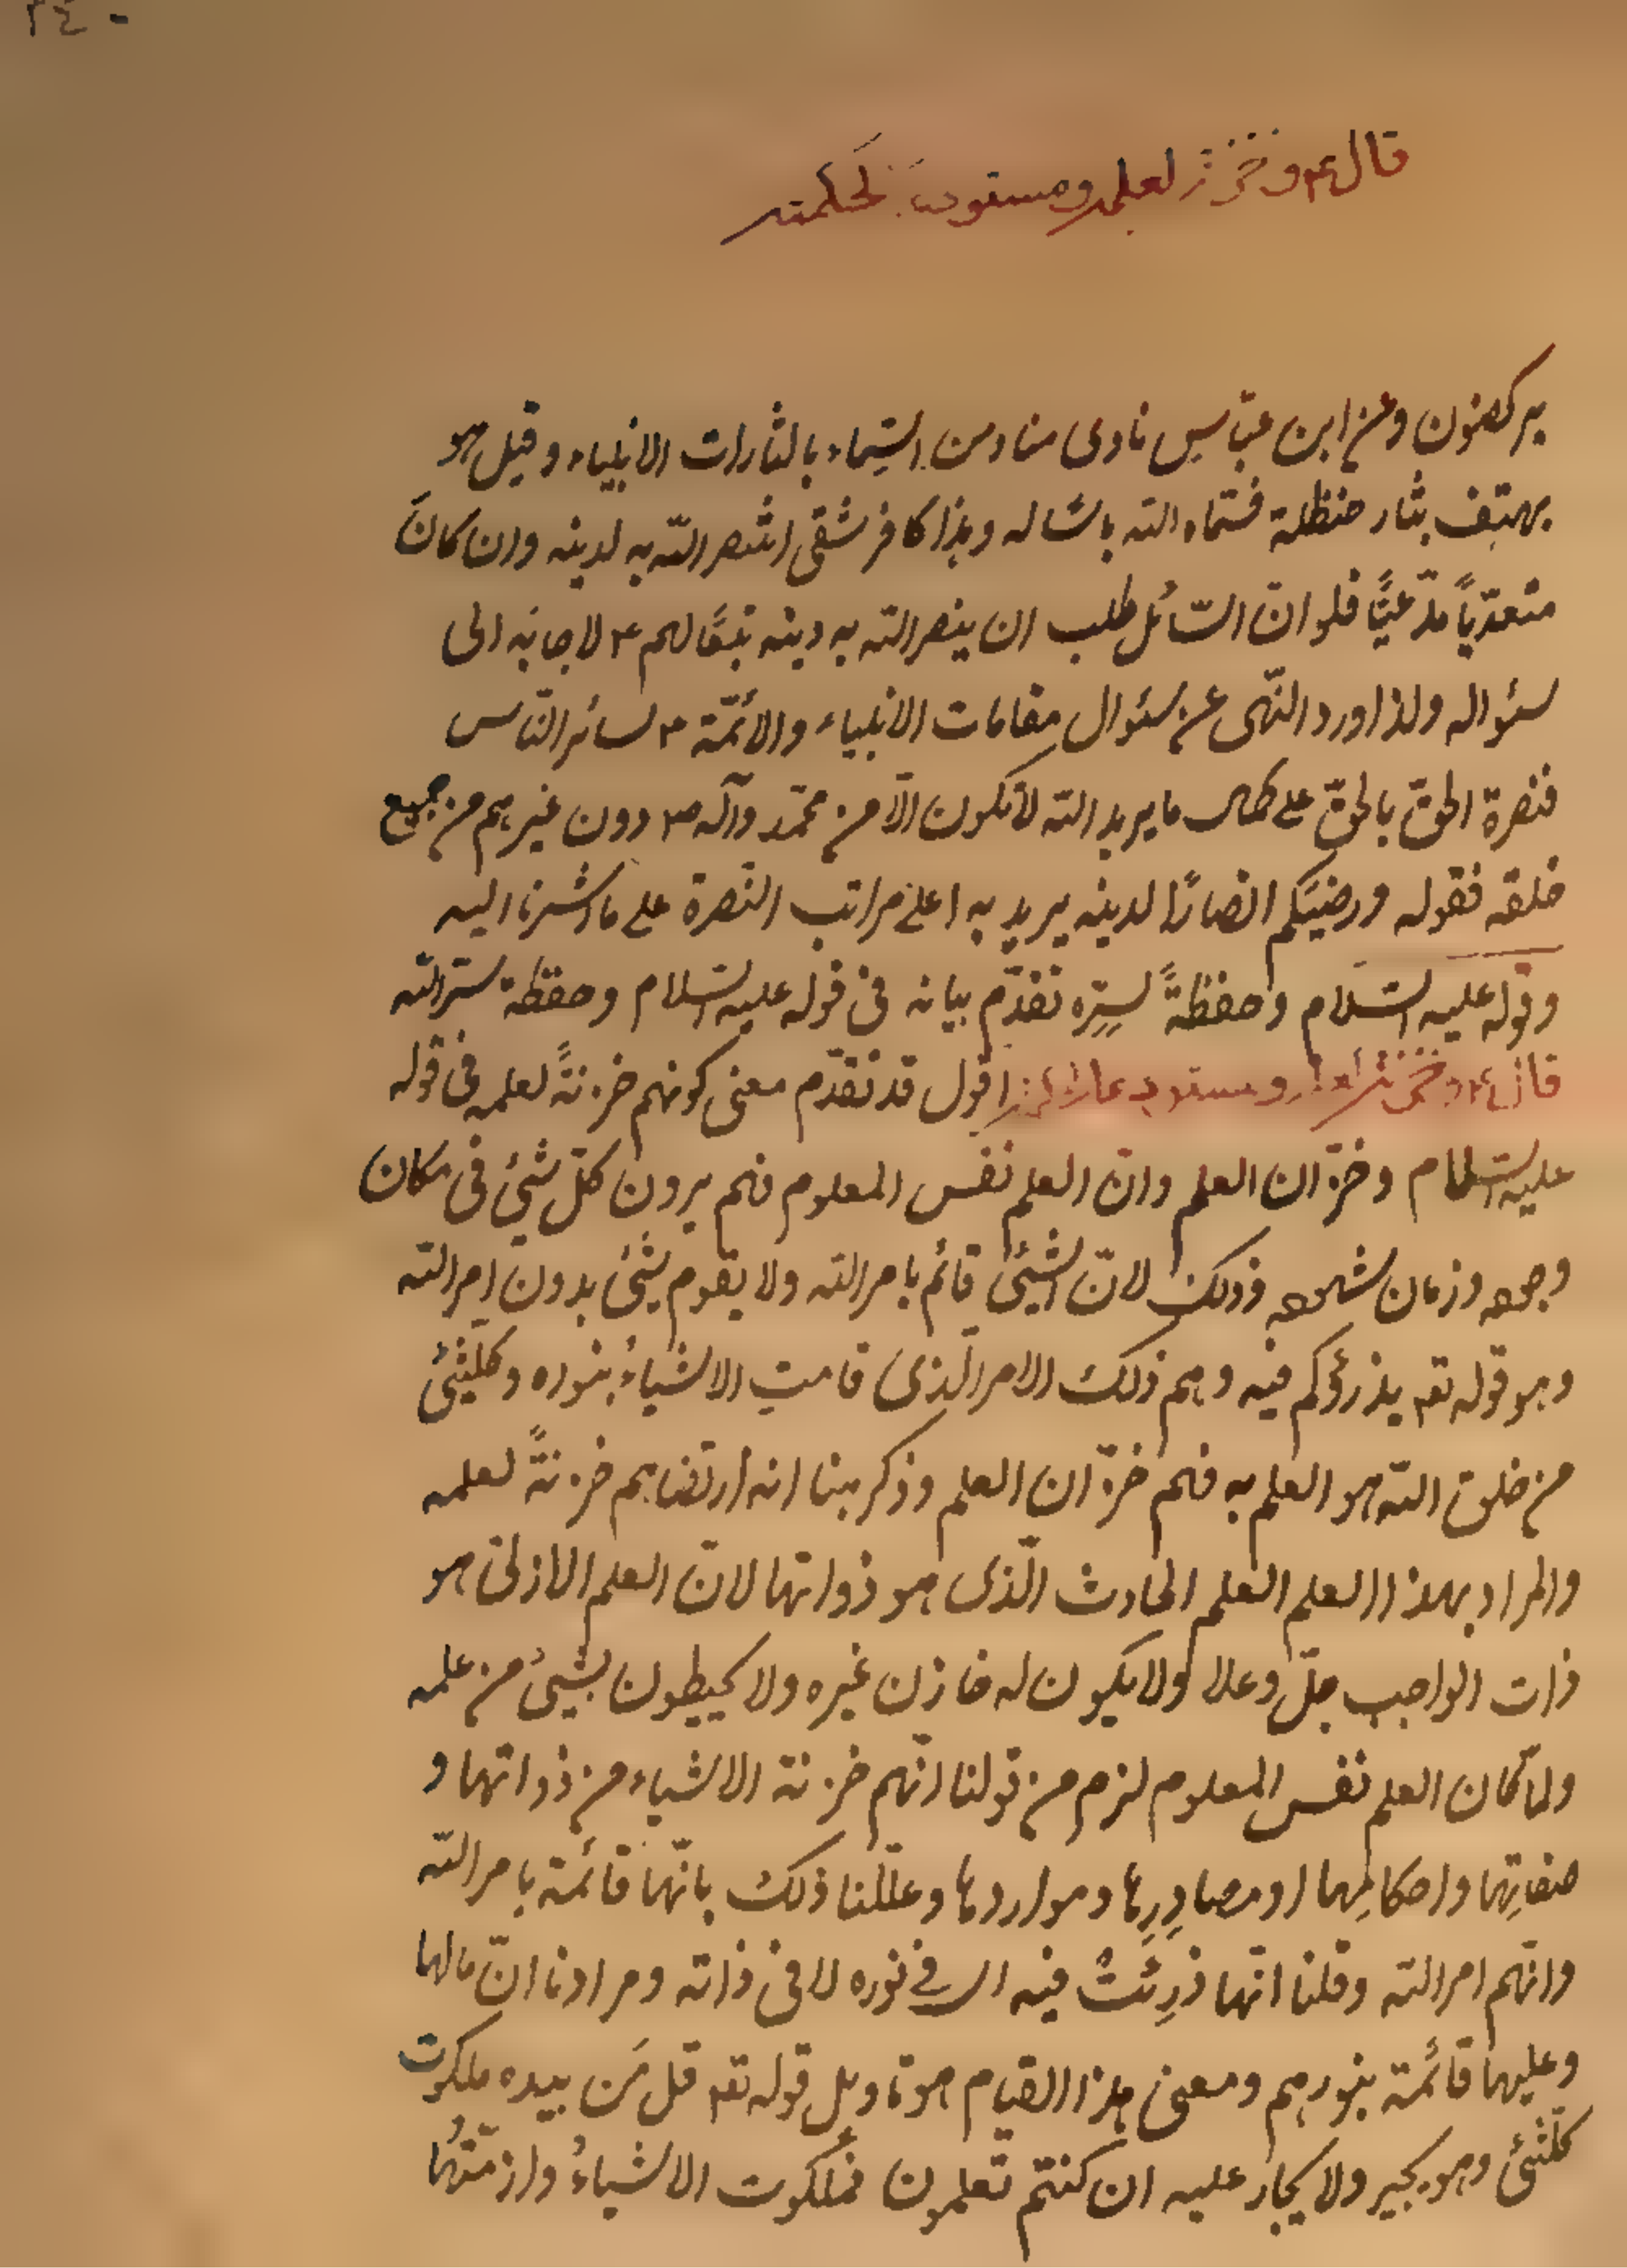 ٢٤٠
قال ع و خزنة لعلمه ومستودعا لحكمته
يركضون وعن ابن عبّاس نادى مناد من السّماء بالثارات الانبياء وقيل هو
يهتف بثار حنظلة فسمّاه الله باسٔاله وهذا كافر شقى انتصر الله به لدينه وان كانَ
متعدّياً مدّعيًّا فلو انّ السّائل طلب ان ينصر الله به دينه تبعًا لهم ع لاجابه الى
سئواله ولذا ورد النّهى عن سئوال مقامات الانبياء والائمّة ع لسائر النّاس
فنصرة الحقّ بالحقّ على كمال ما يريد الله لا تكون الّا من محمّد وآله ص دون غيرهم من جميع
خلقه فقوله ورضيَكم انصارًا لدينه يريد به اعلى مراتب النّصرة على ما اشرنا اليه
وقوله عليه السّلام وحفظةً لسِرّه تقدّم بيانه فى قوله عليه السّلام وحفظة سرّ الله
قال ع وخزنة لعلمه ومستودعا لحكمته اقول قد تقدّم معنى كونهم خزنةً لعلمه فى قوله
عليه السّلام وخزّان العلم وانّ العلم نفس المعلوم فهم يرون كلّ شئ فى مكان
وزمان وذلك لانّ الشّئ قائم بامر الله ولا يقوم شئ بدون امر الله
وهو قوله تع يذرؤكم فيه وهم ذلك الامر الّذى قامت الاشياءُ بنوره وكلّشئ
من خلق الله هو العلم به فهم خزّان العلم وذكر هنا انه ارتضاهم خزنةً لعلمه
والمراد بهذا العلم العلم الحادث الّذى هو ذواتها لانّ العلم الازلىّ هو
ذات الواجب جلّ وعلا ولا يكون له خازن غيره ولا يحيطون بشئ من علمه
ولمّا كان العلم نفس المعلوم لزم من قولنا انّهم خزنة الاشياء من ذواتها و
صفاتِها واحكامِها او مصادِرِها ومواردها وعلّلنا ذلك بانّها قائمة بامر الله
وانّهم امر الله وقلنا انّها ذرِئَتْ فيه اى فى نوره لا فى ذاته ومرادنا انّ مالها
وعليها قائمة بنورهم ومعنى هذا القيام هو تاويل قوله تع قل مَن بيده ملكوت
كلّشئ وهو يجير ولا يجار عليه ان كنتم تعلمون فملكوت الاشياءُ وازمّتُها